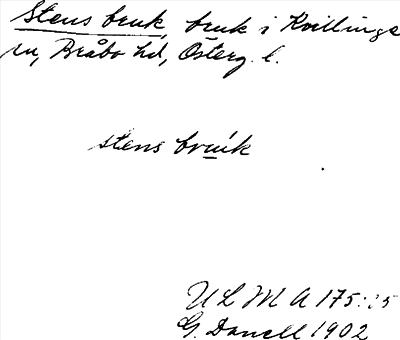 Stens bruk, bruk i Kvillinge
sn, Bråbo hd, Österg. l.
stens bruk
ULMA 175:25
G. Danell 1902